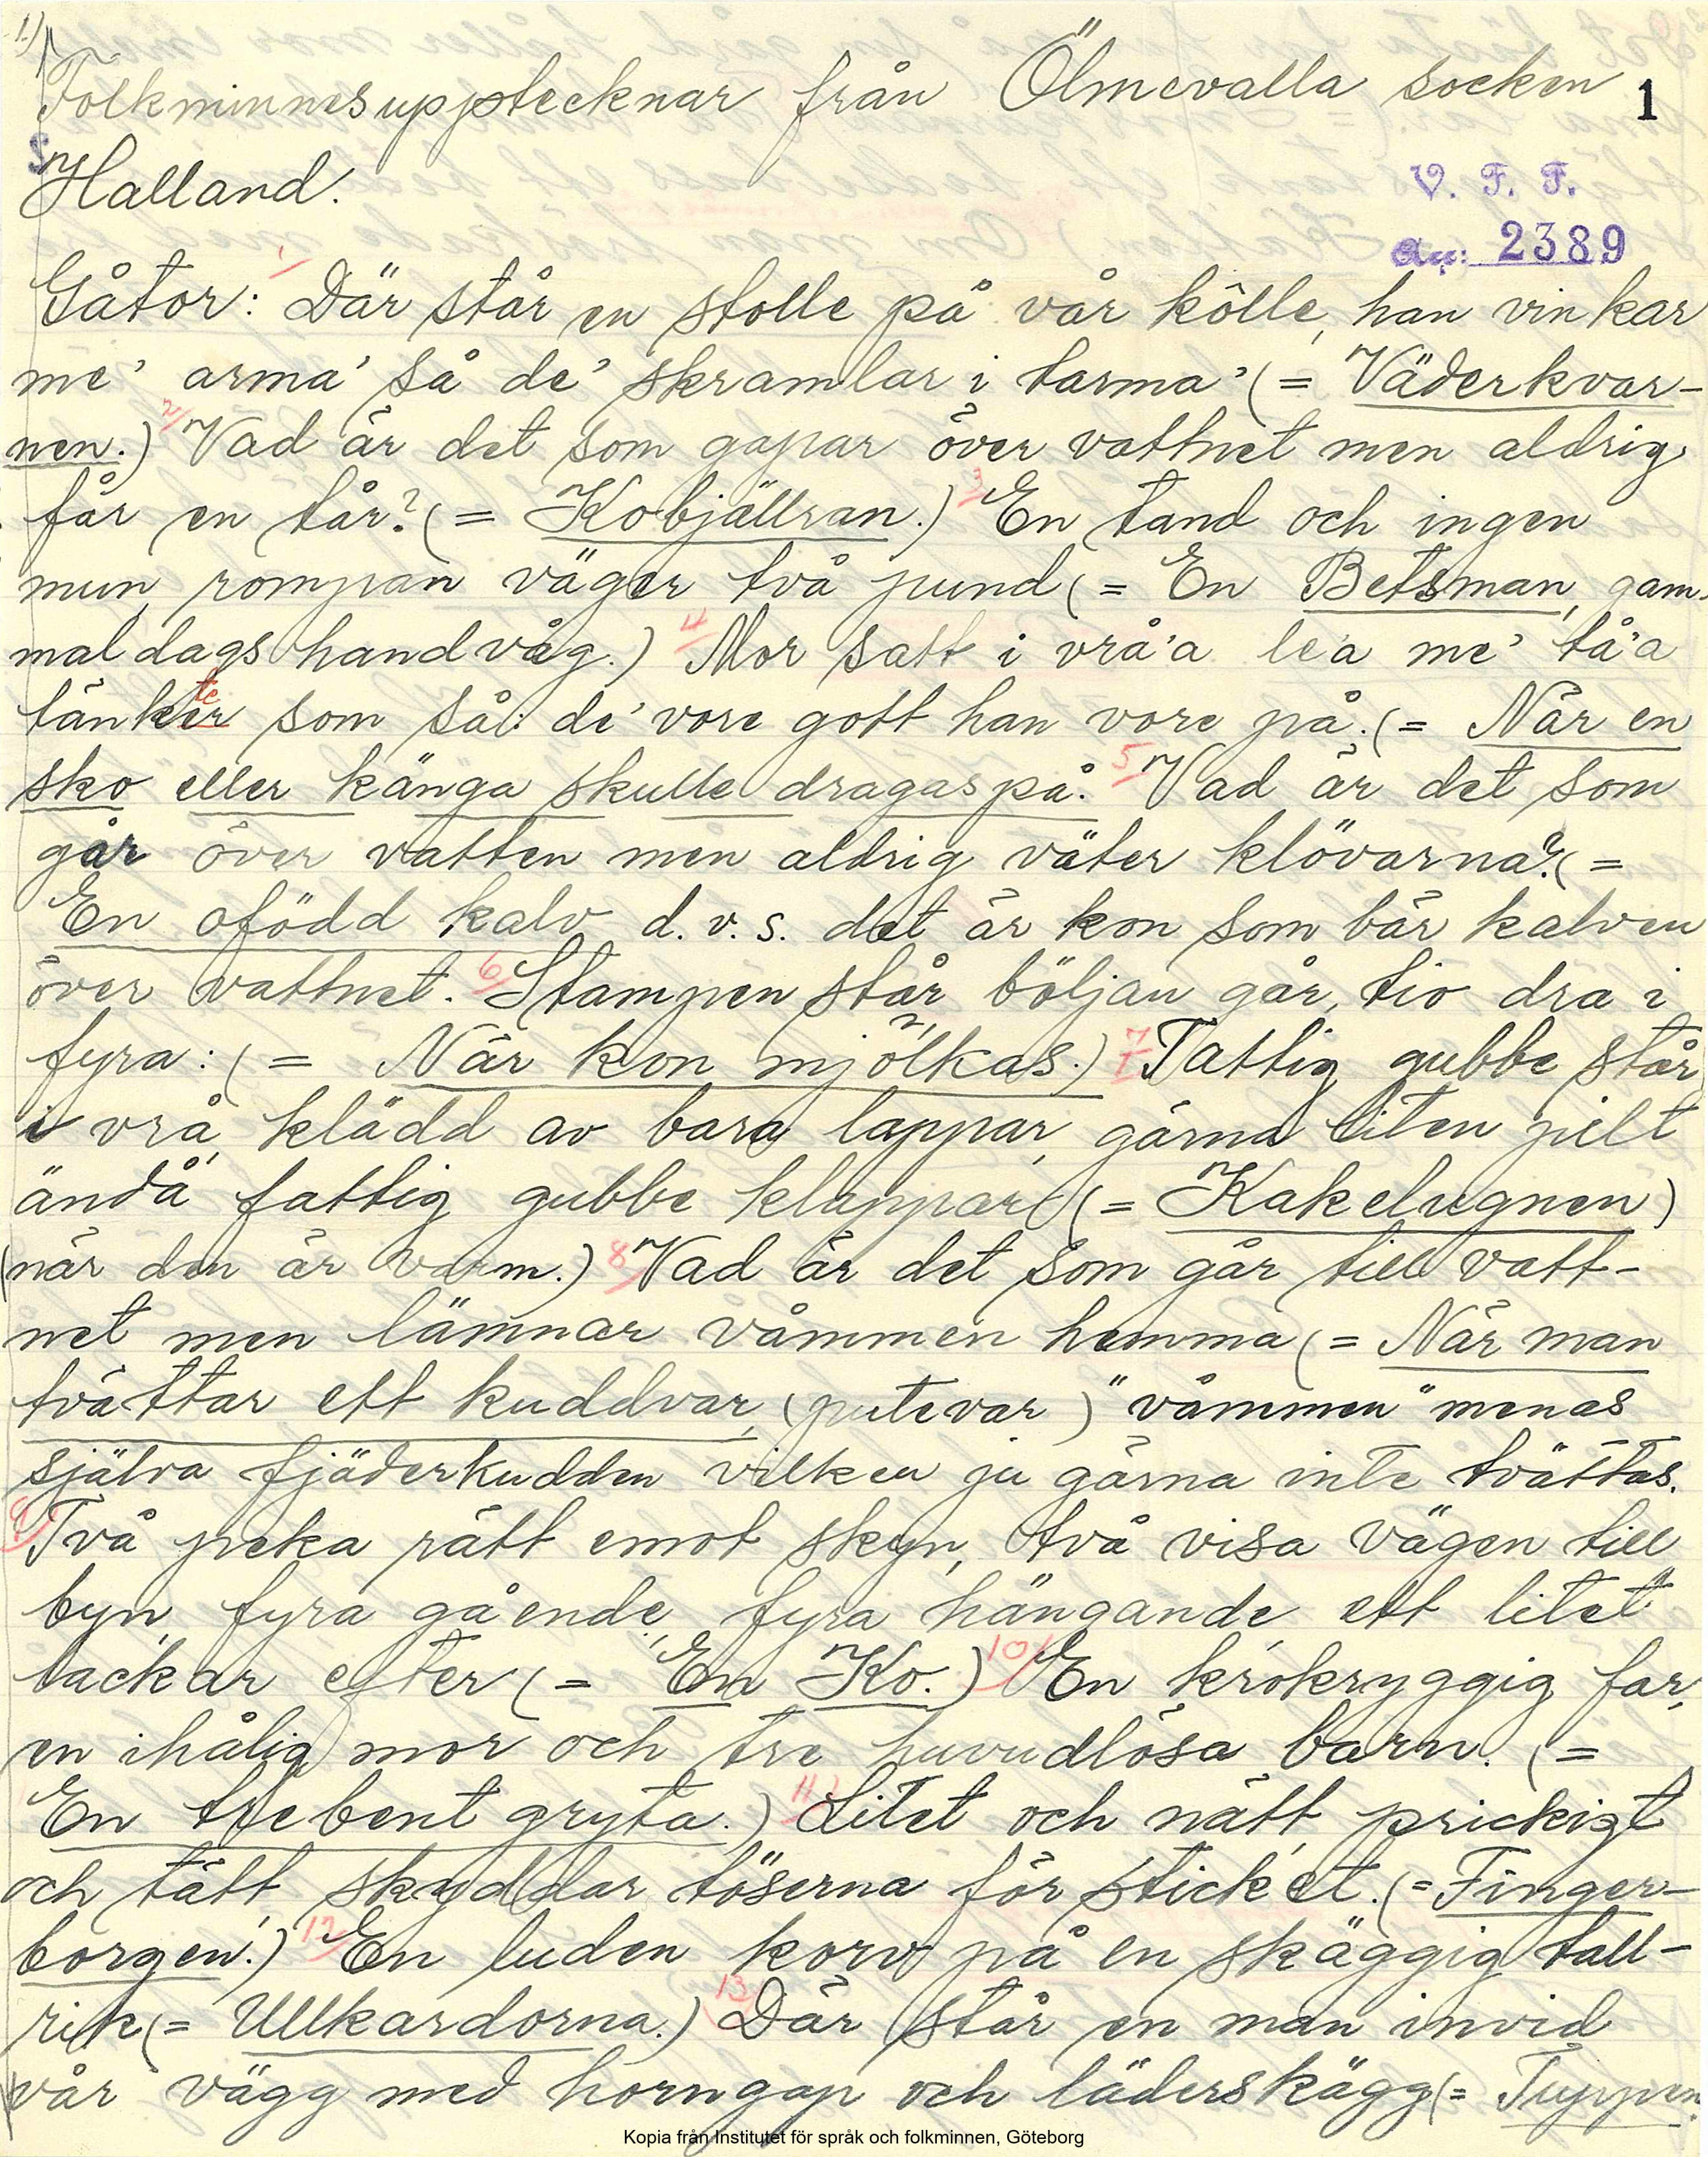 1.)
Folkminnesupptecknar från Ölmevalla socken 1
Halland.
V. F. F.
2389
1/
Gåtor: Där står en stolle på vår kölle, han vinkar
me' arma' så de' skramlar i tarma' (= Väderkvar-
nen.) 2/ Vad är det som gapar över vattnet men aldrig
får en tår? (= Kobjällran.) 3/ En tand och ingen
mun, rompan väger två pund (= En Betsman, gam-
mal dags handvåg.) 4/ Mor satt i vrå'a le'a me' tå'a
te
tänker som så: de' vore gott han vore på. (= När en
sko eller känga skulle dragas på. 5/ Vad är det som
går över vatten men aldrig väter klövarna? (=
En ofödd kalv d.v.s. det är kon som bär kalven
över vattnet. 6/ Stampen står böljan går, tio dra i
fyra: (= När kon mjölkas.) 7/ Fattig gubbe står
i vrå, klädd av bara lappar, gärna liten pilt
ändå fattig gubbe klappar (= Kakelugnen)
(när den är varm.) 8/ Vad är det som går till vatt-
net men lämnar våmmen hemma (= När man
tvättar ett kuddvar, (putevar) "våmmen" menas
själva fjäderkudden vilken ju gärna inte tvättas.
9/ Två peka rätt emot skyn, två visa vägen till
byn, fyra gående, fyra hängande ett litet
lackar efter (= En Ko.) 10/ En krokryggig far,
en ihålig mor och tre huvudlösa barn. (=
En trebent gryta.) 11/ Litet och nätt, prickigt
och tätt, skyddar töserna för stick'et. (= Finger-
borgen.) 12/ En luden korv på en skäggig tall-
rik (= Ullkardorna.) 13/ Där står en man invid
vår vägg med horngap och läderskägg (= Tuppen.
Kopia från Institutet för språk och folkminnen, Göteborg